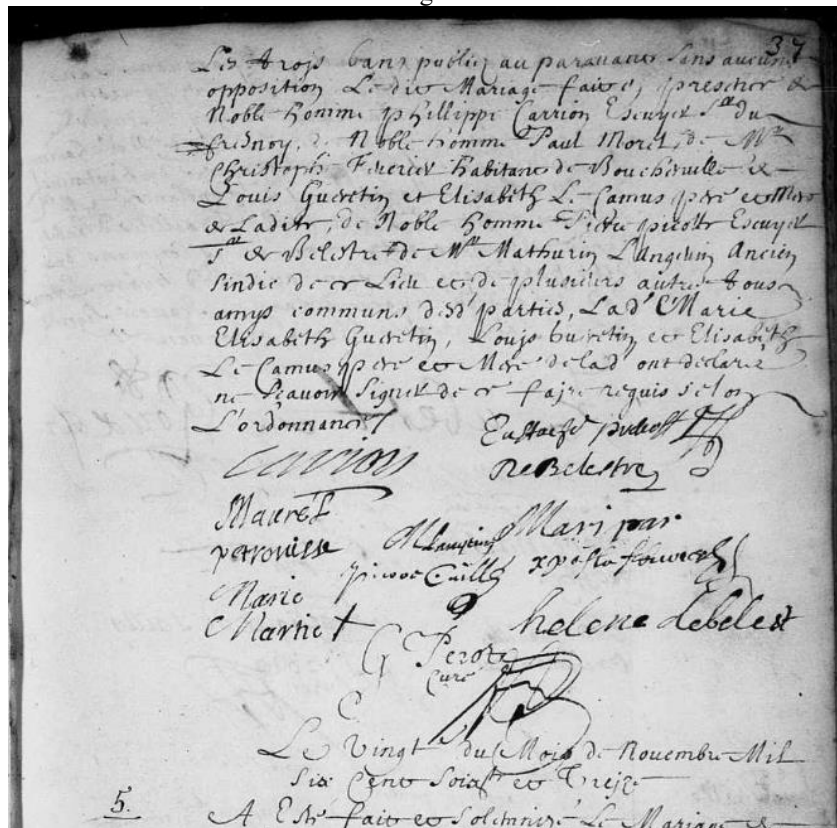 37
Les trois bans publiez au paravant sans aucune
opposition Le dit Mariage fait en presence de
Noble homme Phillippe Carrion Escuyer Sr du
fresnoy, de Noble homme Paul Moret, de Mr
Christophe Fevrier habitant de Boucherville de
Louis Gueretin et Elisabeth Le Camus pere et Mere
de Ladite, de Noble homme Pierre picotte Escuyer
Sr de Belestre de Mr Mathurin Langevin Ancien
sindic de ce Lieu et de plusieurs autres tous
amys communs desd parties, Lad Marie
Elisabeth Gueretin, Louis Gueretin et Elisabeth
Le Camus pere et Mere de lad ont declarez
ne sçavoir signer de ce faire requis selon
L'ordonnance
Carrion
De Belestre
Maurel
Mari
Marie
Martin helene debelest
G Perot
Curé
Le Vingt du Mois de Novembre Mil
Six Cent Soixte et Treize
5. A Esté fait et Solemnisé Le Mariage de